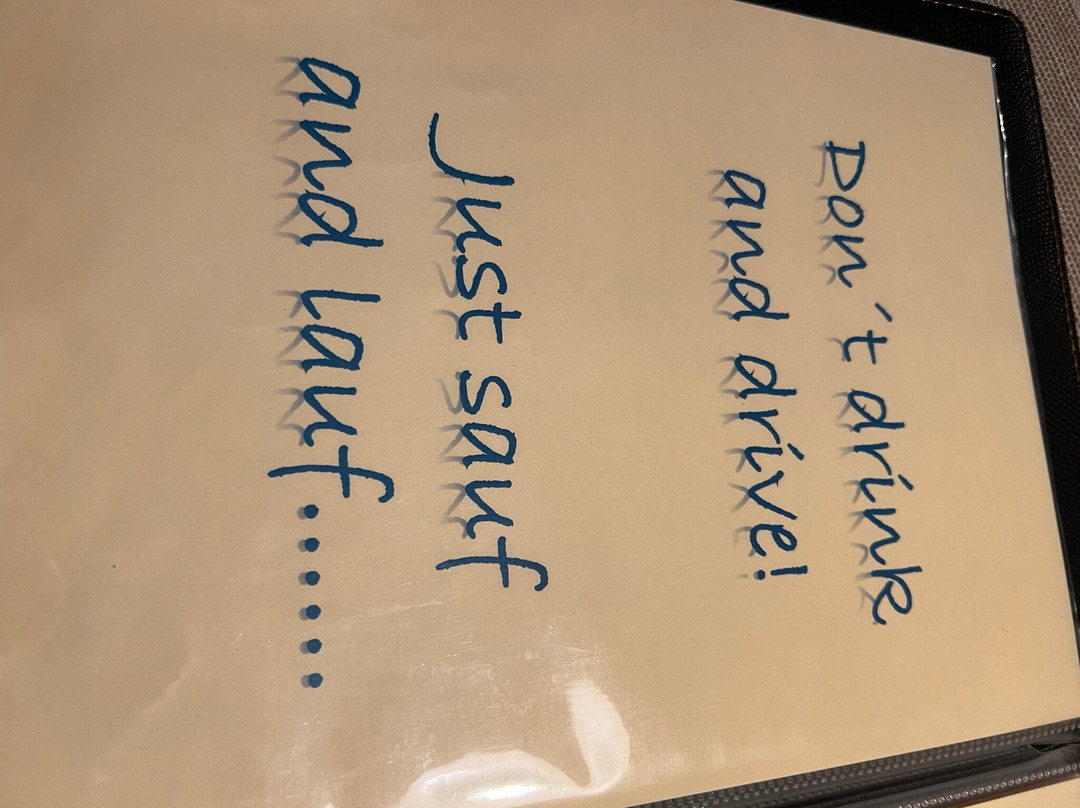 Don´t drink
and drive!
Just sauf
and lauf......